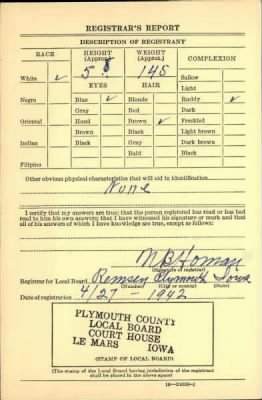 REGISTRAR'S REPORT
DESCRIPTION OF REGISTRANT
RACE HEIGHT (Approx.) WEIGHT (Approx.) COMPLEXION
5 8 145 Sallow
White ✓ EYES HAIR Light
Negro Blue ✓ Blonde Ruddy ✓
Gray Red Dark
Oriental Hazel Brown ✓ Freckled
Brown Black Light brown
Indian Black Gray Dark brown
Bald Black
Filipino
Other obvious physical characteristics that will aid in identification
None
I certify that my answers are true; that the person registered has read or has had
read to him his own answers; that I have witnessed his signature or mark and that
all of his answers of which I have knowledge are true, except as follows:
N B Homan
(Signature of registrar)
Registrar for Local Board Remsen Plymouth Iowa
(Number) (City or county) (State)
Date of registration 4/27 - 1942
PLYMOUTH COUNTY
LOCAL BOARD
COURT HOUSE
LE MARS IOWA
(STAMP OF LOCAL BOARD)
(The stamp of the Local Board having jurisdiction of the registrant
shall be placed in the above space)